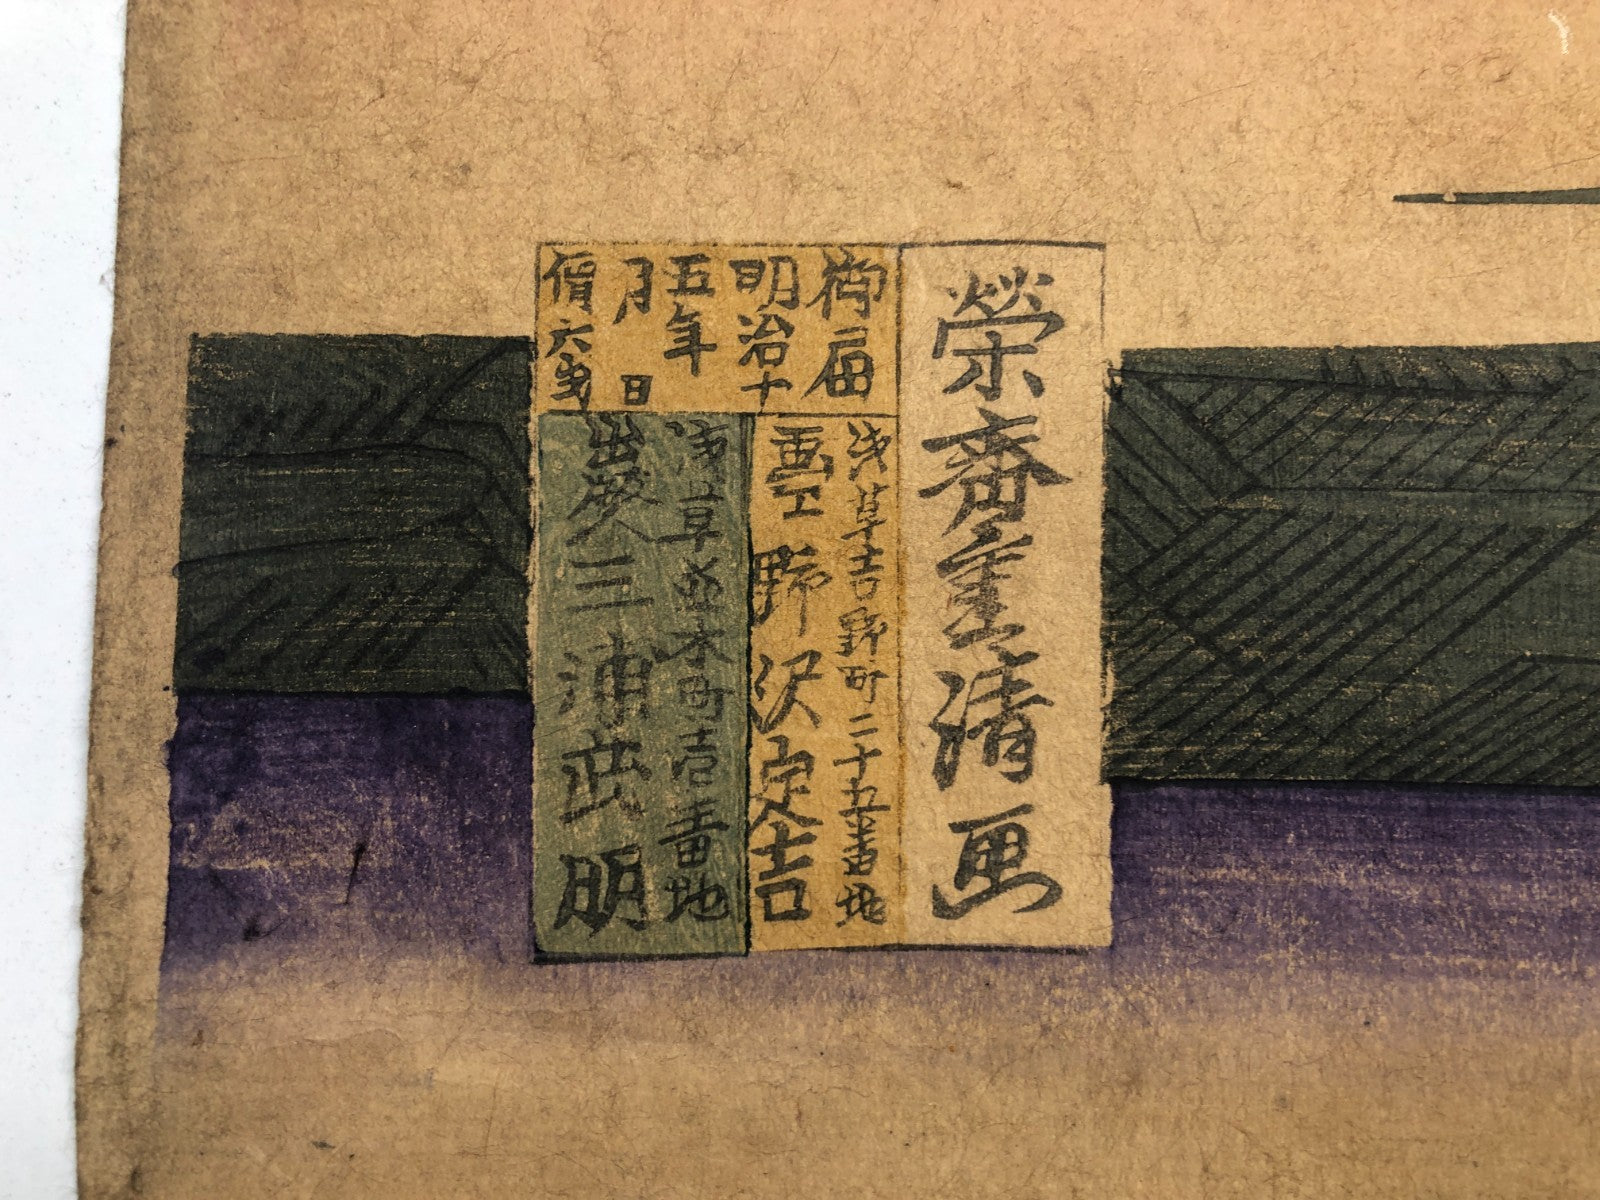 榮斎重清画
御届
明治十
五年
月 日
価六戋
浅草吉野町二十五番地
画工 野沢定吉
浅草並木町壱番地
出版人 三浦武明